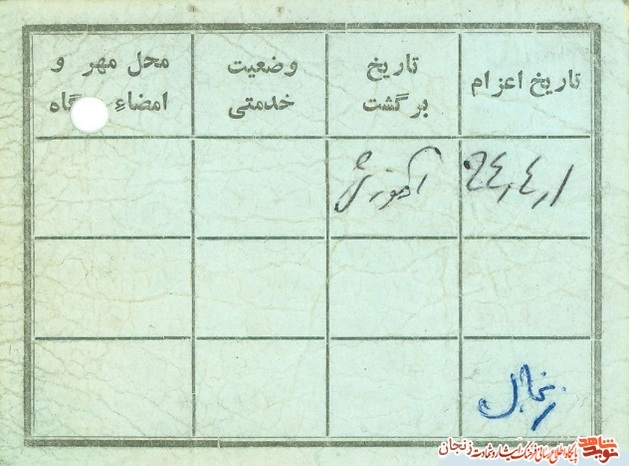 تاریخ اعزام
تاریخ برگشت
وضعیت خدمتی
محل مهر و امضاء گاه
آموزش
نوید شاهد
پایگاه اطلاع رسانی فرهنگ ایثار و شهادت زنجان